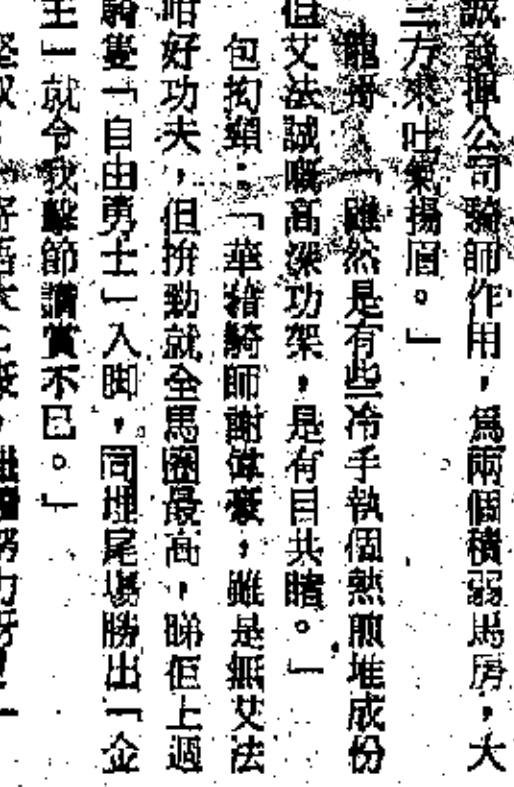 誠發揮公司騎師作用，爲兩個積弱馬房，大
三方來吐氣揚眉。」
龍哥：「雖然是有些冷手執個熱煎堆成份
但艾法誠嘅高深功架，是有目共睹。」
包拗頸：「華籍騎師謝偉豪，雖是無艾法
咁好功夫，但拚勁就全馬圈最高，睇佢上週
騎隻「自由勇士」入脚，同埋尾塲勝出「金
主」就令我擊節讚賞不已。」